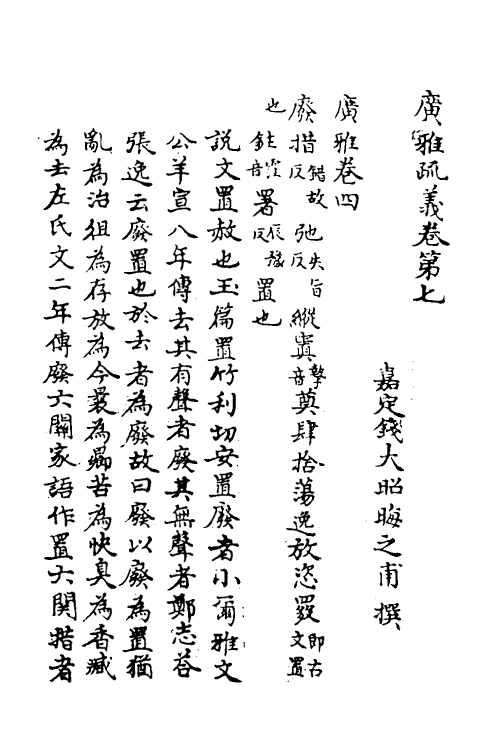 廣雅疏義卷第七
嘉定錢大昭晦之甫撰
廣雅卷四
廢措錯故反弛失旨反縱寘音摯奠肆捨蕩逸放恣罬即古文置
也鉒音霔署辰預反置也
說文置赦也玉篇置竹利切安置廢者小爾雅文
公羊宣八年傳去其有聲者廢其無聲者鄭志荅
張逸云廢置也於去者為廢故曰廢以廢為置猶
亂為治徂為存放為今曩為曏苦為快臭為香臧
為去左氏文二年傳廢六關家語作置六関措者